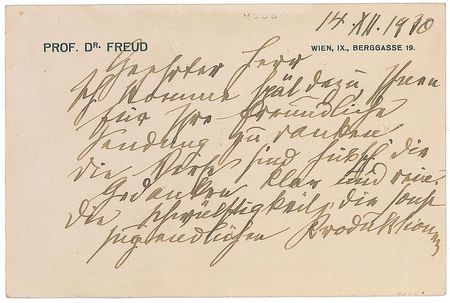 14. XII. 1910
PROF. DR. FREUD
WIEN, IX., BERGGASSE 19.
Geehrter Herr
Ich komme spät dazu, Ihnen
für Ihre freundliche
Sendung zu danken
Die Verse sind hübsch die
Gedanken klar und rein.
Die Schwülstigkeit, die sonst
jugendlichen Produktionen